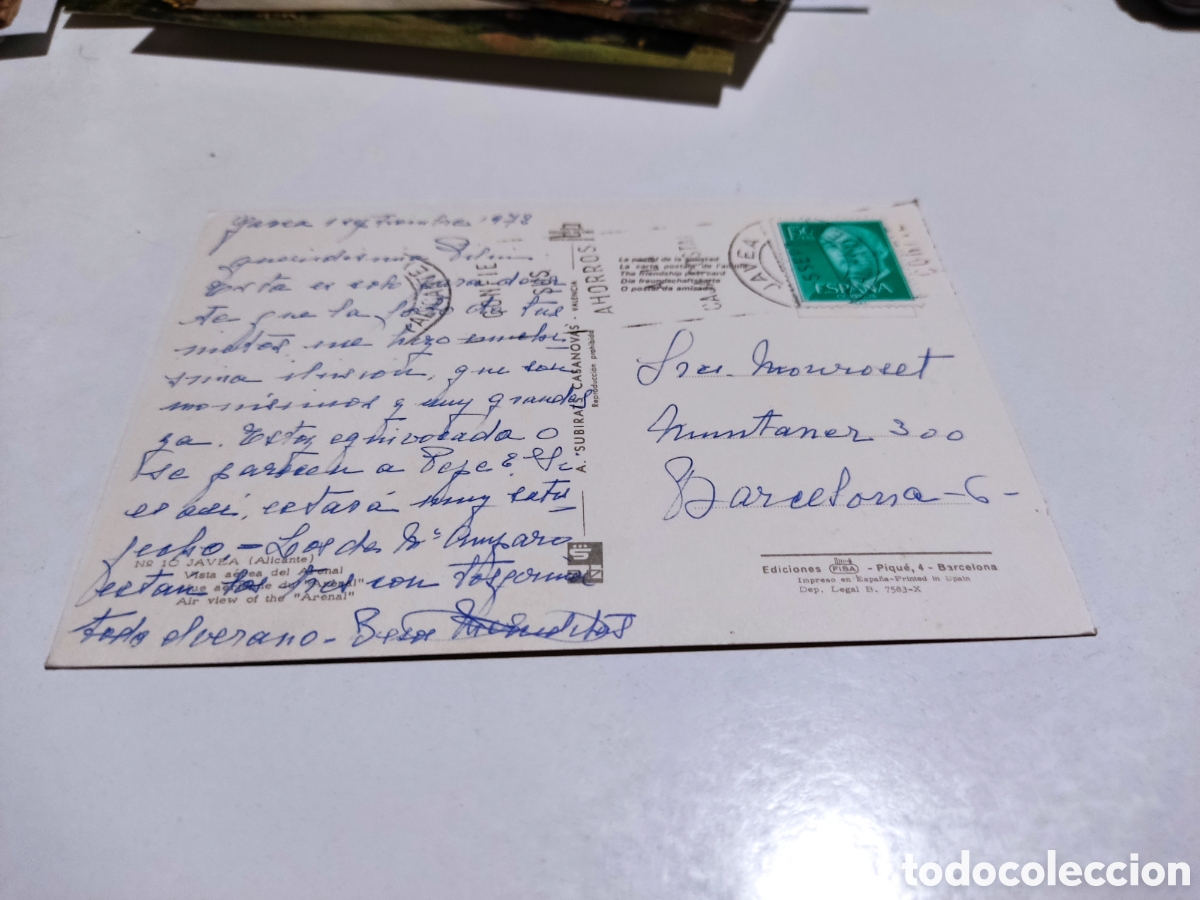 Javea 1 septiembre 1978
queridisima
Esta es solo para decir
te que la foto de tus
nietos, me hizo muchi
sima ilusion, que son
monisimos y muy grandes
ya. Estoy equivocada o
se parecen a Pepe? Si
es asi, estará muy satis
fecho. - Los de Mª Amparo
estan los tres con
todo el verano - Besos
Nº 10 JAVEA (Alicante)
Vista aérea del Arenal
"Arenal"
Air view of the "Arenal"
JAVEA
(ALICANTE)
CONFIE
SUS
AHORROS
CAJA POSTAL
A. SUBIRATS CASANOVAS - VALENCIA
Reproducción prohibida
La postal de la amistad
La carte postale de l'amitié
The friendship post card
Die freundschaftskarte
O postal da amizade
JAVEA
ESPAÑA
Sra. Monroset
Muntaner 300
Barcelona - 6 -
Ediciones FISA - Piqué, 4 - Barcelona
Impreso en España-Printed in Spain
Dep. Legal B. 7583-X
todocoleccion